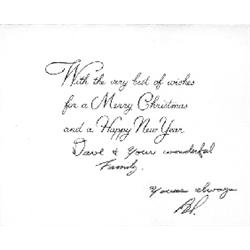 With the very best of wishes
for a Merry Christmas
and a Happy New Year
Dave & Your wonderful
Family.
Yours always